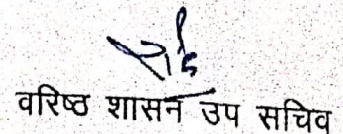 वरिष्ठ शासन उप सचिव